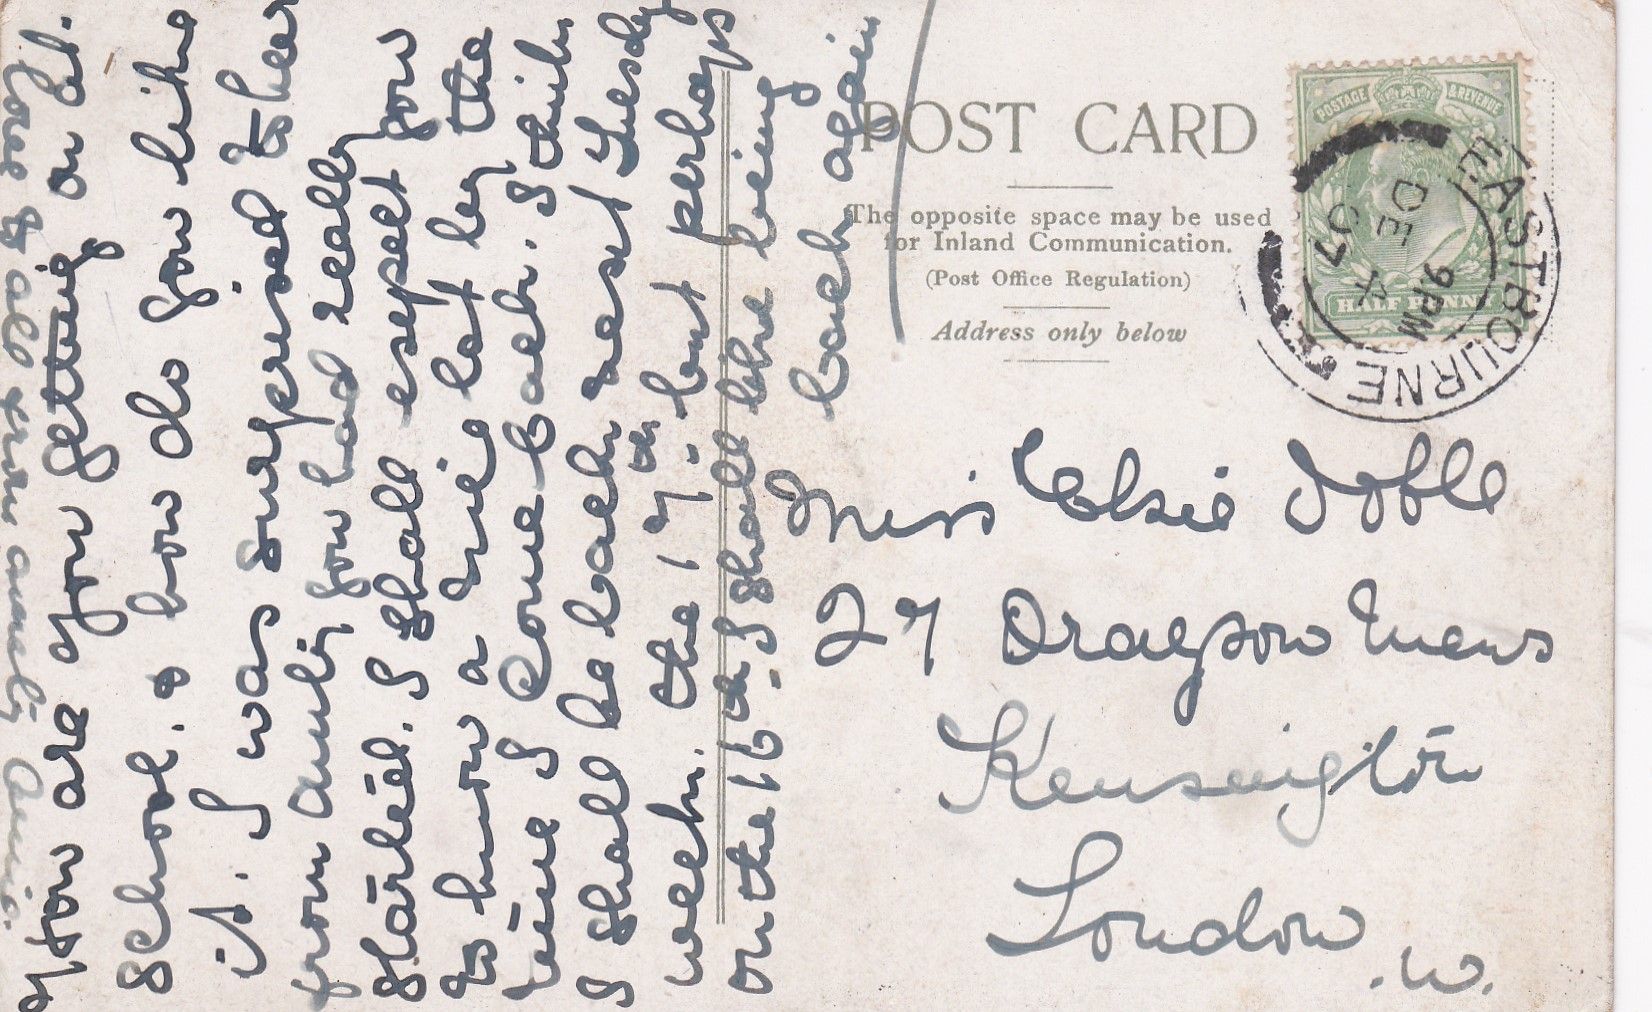 POST CARD
The opposite space may be used
for Inland Communication.
(Post Office Regulation)
Address only below
POSTAGE & REVENUE
HALF PENNY
EASTBOURNE
9 PM
DE 4
07
Miss Elsie Joble
27 Drayson Mews
Kensington
London
.W.
How are you getting on at
School. & how do you like
it. I was surprised to hear
from Aunty you had really
started. I shall expect you
to know a nice lot by the
time I Come back. I think
I shall be back next Tuesday
week. the 17th but perhaps
on the 16th. I shall like being
back again
love to all from Aunty Annie.